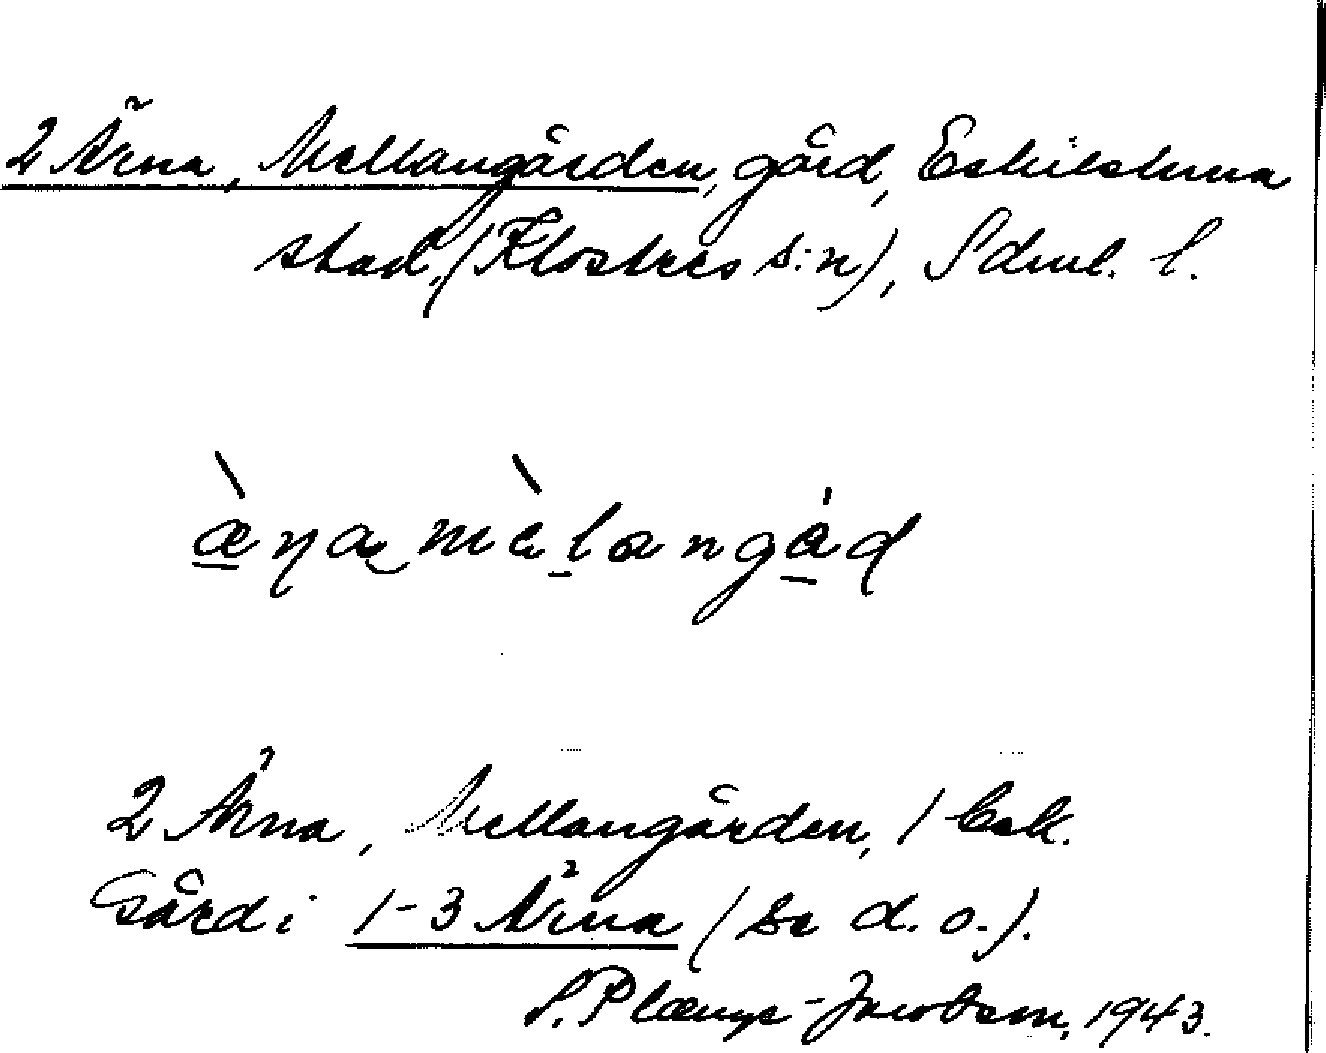 2 Ärna, Mellangården, gård, Eskilstuna
stad, (Klosters s:n), Södml. l.
2 Ärna, Mellangården, 1 bok.
Gård i 1-3 Ärna (se d. o.).
S. Plænge-Jacobson, 1943.